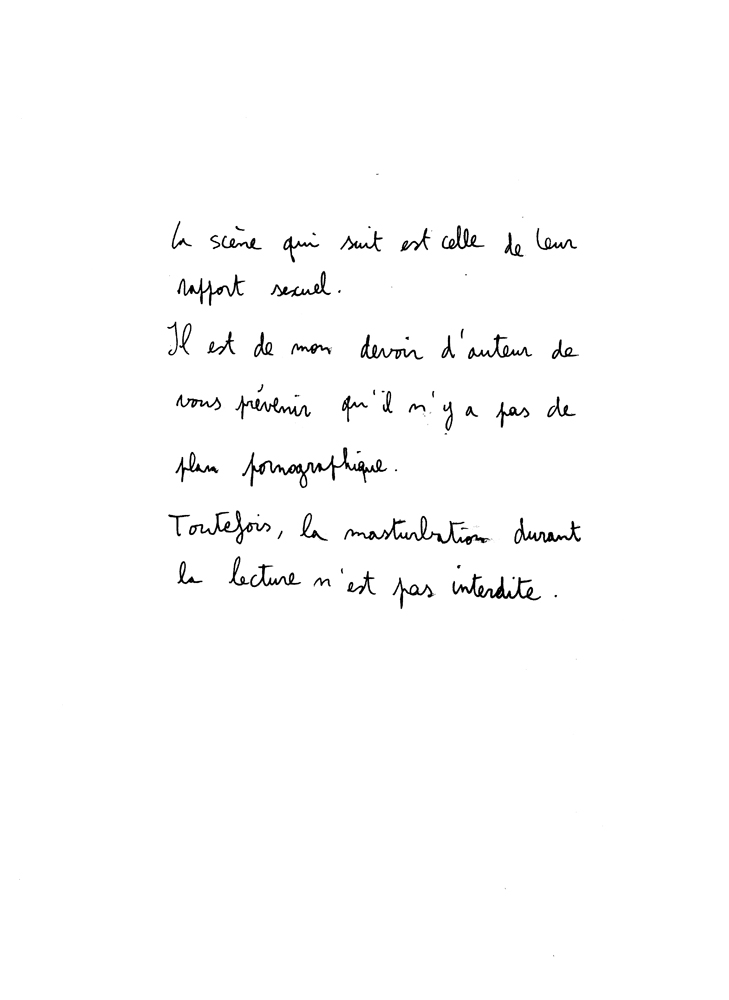 La scène qui suit est celle de leur
rapport sexuel.
Il est de mon devoir d'auteur de
vous prévenir qu'il n'y a pas de
plan pornographique.
Toutefois, la masturbation durant
la lecture n'est pas interdite.